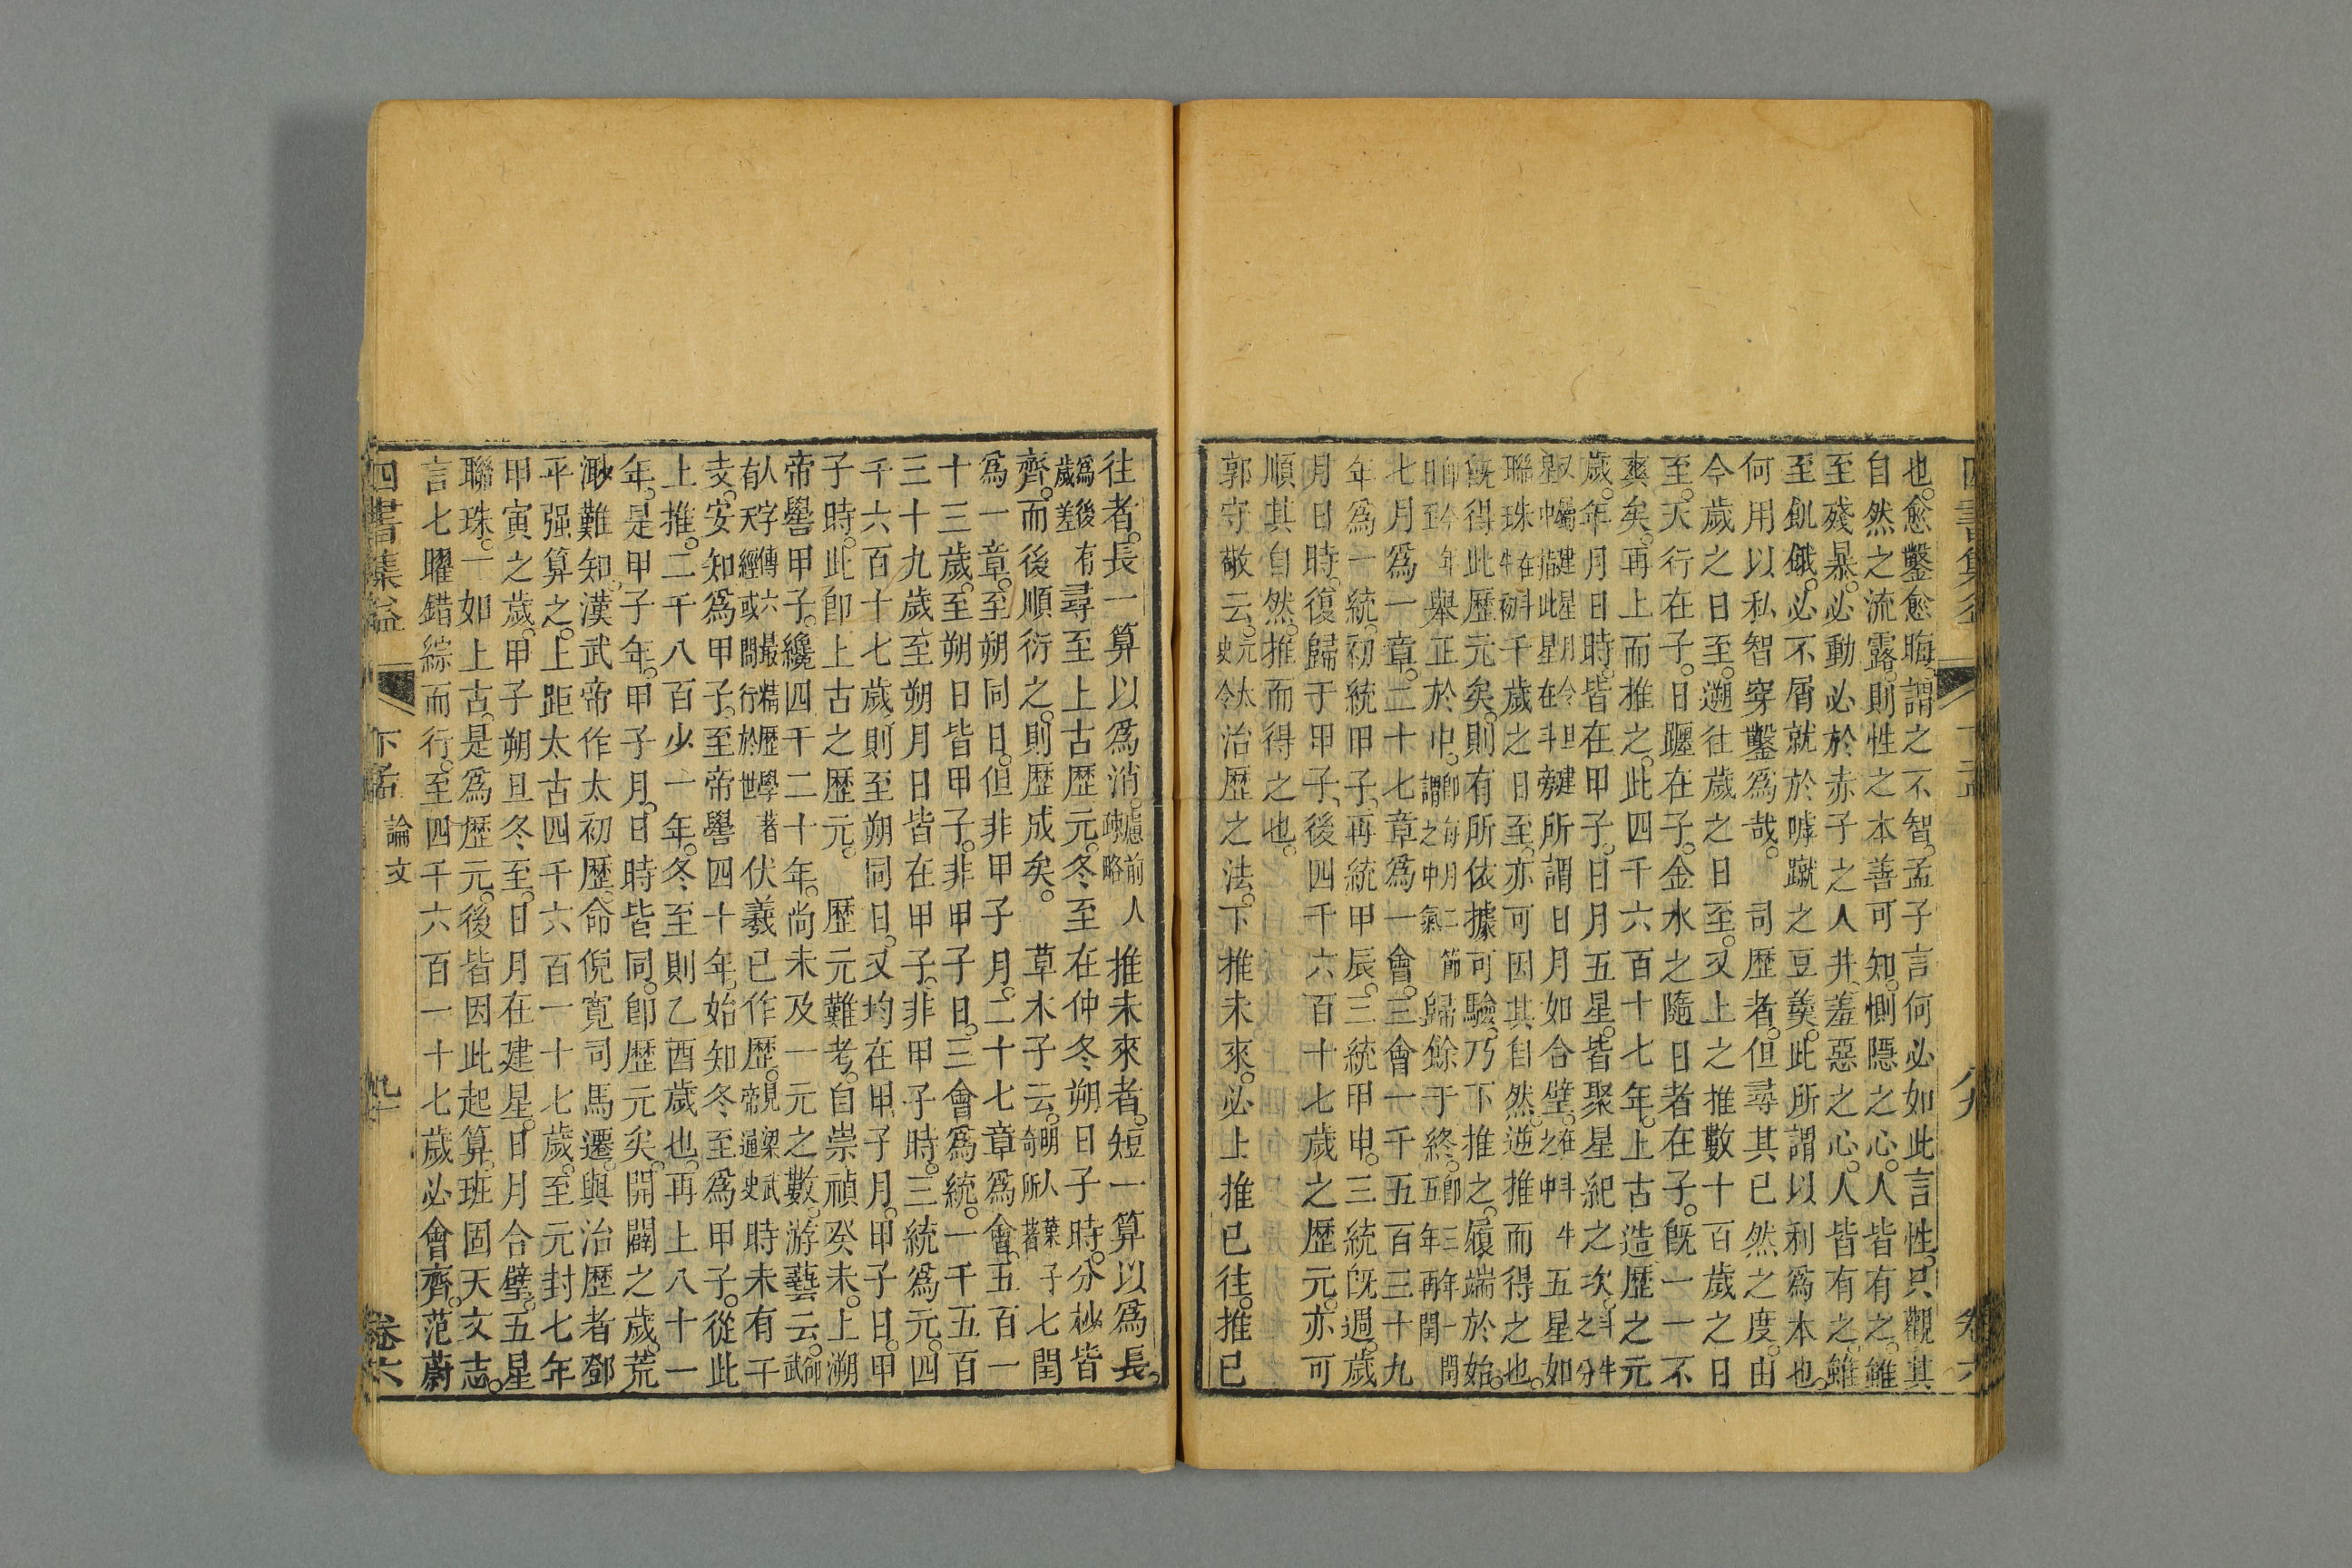 也。愈鑿愈晦。謂之不智。孟子言何必如此言性。只觀其
自然之流露。則性之本善可知。惻隱之心。人皆有之。雖
至殘暴。必動必於赤子之人井。羞惡之心。人皆有之。雖
至飢餓。必不屑就於嘑蹴之豆羹。此所謂以利為本也。
何用以私智穿鑿為哉。 司歷者。但尋其已然之度。由
今歲之日至。遡往歲之日至。又上之推數十百歲之日
至。天行在子。日躔在子。金水之隨日者在子。既一一不
爽矣。再上而推之。此四千六百十七年。上古造歷之元
歲。年月日時。皆在甲子。日月五星。皆聚星紀之次。斗牛之分
聯珠千歲之日至。亦可因其自然。遊推而得之也。
既得此歷元矣。則有所依據可驗。乃下推之。履端於始。
舉正於中。謂之中氣歸餘于終。五年再閏
七月為一章。二十七章為一會。三會一千五百三十九
年為一統。初統甲子。再統甲辰。三統甲申。三統既週。歲
月日時。復歸于甲子。後四千六百十七歲之歷元。亦可
順其自然。推而得之也。
郭守敬云。元太史令治歷之法。下推未來。必上推已往。推已
往者。長一算以為消。慮前人疎略推未來者。短一算以為長。
為後有歲差尋至上古歷元。冬至在仲冬朔日子時。分杪皆
齊。而後順衍之。則歷成矣。 草木子云。明人葉子奇所著七閏
為一章。至朔同日。但非甲子月。二十七章為會。五百一
十三歲。至朔日皆甲子。非甲子日。三會為統。一千五百
三十九歲至朔月日皆在甲子。非甲子時。三統為元。四
千六百十七歲則至朔同日。又均在甲子月。甲子日。甲
子時。此即上古之歷元。 歷元難考。自崇禎癸未。上溯
帝嚳甲子。纔四千二十年。尚未及一元之數。游藝云。
人字子六最精歷學有天經或問行於世著伏羲已作歷。時未有干
支。安知為甲子。至帝嚳四十年。始知冬至為甲子。從此
上推。二千八百少一年。冬至則乙酉歲也。再上八十一
年。是甲子年。甲子月。日時皆同。即歷元矣。開闢之歲。荒
渺難知。漢武帝作太初歷。命倪寬司馬遷。與治歷者鄧
平强算之。上距太古四千六百一十七歲。至元封七年
甲寅之歲。甲子朔旦冬至。日月在建星。日月合璧。五星
聯珠。一如上古。是為歷元。後皆因此起算。班固天文志。
言七曜錯綜而行。至四千六百一十七歲必會齊。范蔚
四書集益 下孟 論文 九十 卷六